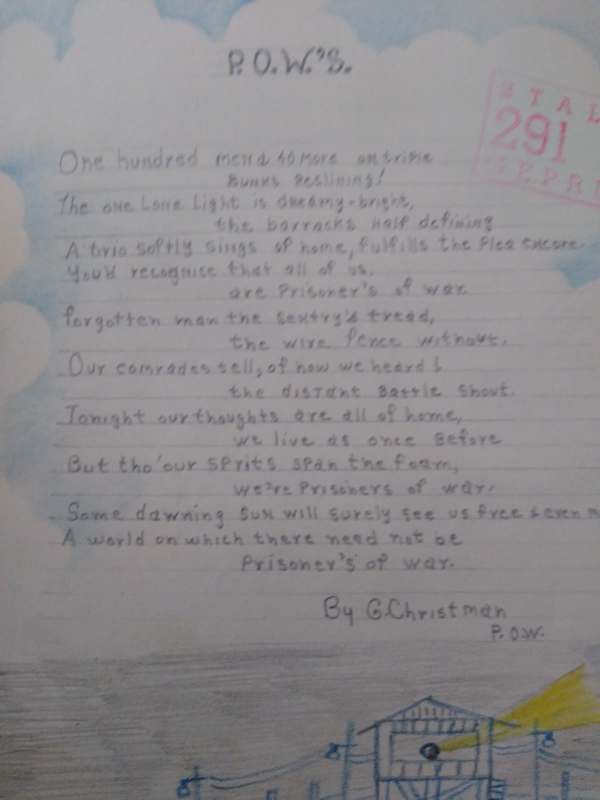 P.O.W.'S.
STAL
291
GEPRÜ
One hundred men & 40 more on triple
Bunks Reclining!
The one Lone Light is dreamy-bright,
the barracks Half defining
A trio softly sings of home, fulfills the Plea encore.
You'd recognise that all of us.
are Prisoner's of war
forgotten man the Sentry's tread,
the wire fence without.
Our comrades tell, of how we heard
the distant Battle Shout.
Tonight our thoughts are all of home,
we live as once Before
But tho'our sprits span the foam,
we're Prisoners of war.
Some dawning sun will surely see us free
A world on which there need not be
Prisoner's of war.
By G.Christman
P.O.W.